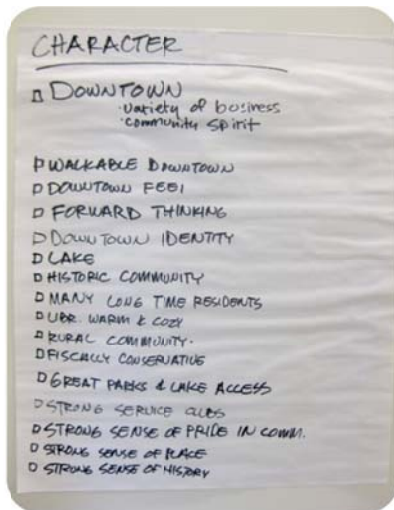 CHARACTER
DOWNTOWN
·variety of business
·community spirit
WALKABLE DOWNTOWN
DOWNTOWN FEEL
FORWARD THINKING
DOWNTOWN IDENTITY
LAKE
HISTORIC COMMUNITY
MANY LONG TIME RESIDENTS
WARM & COZY
RURAL COMMUNITY.
FISCALLY CONSERVATIVE
GREAT PARKS & LAKE ACCESS
STRONG SERVICE CLUBS
STRONG SENSE OF PRIDE IN COMM.
STRONG SENSE OF PLACE
STRONG SENSE OF HISTORY